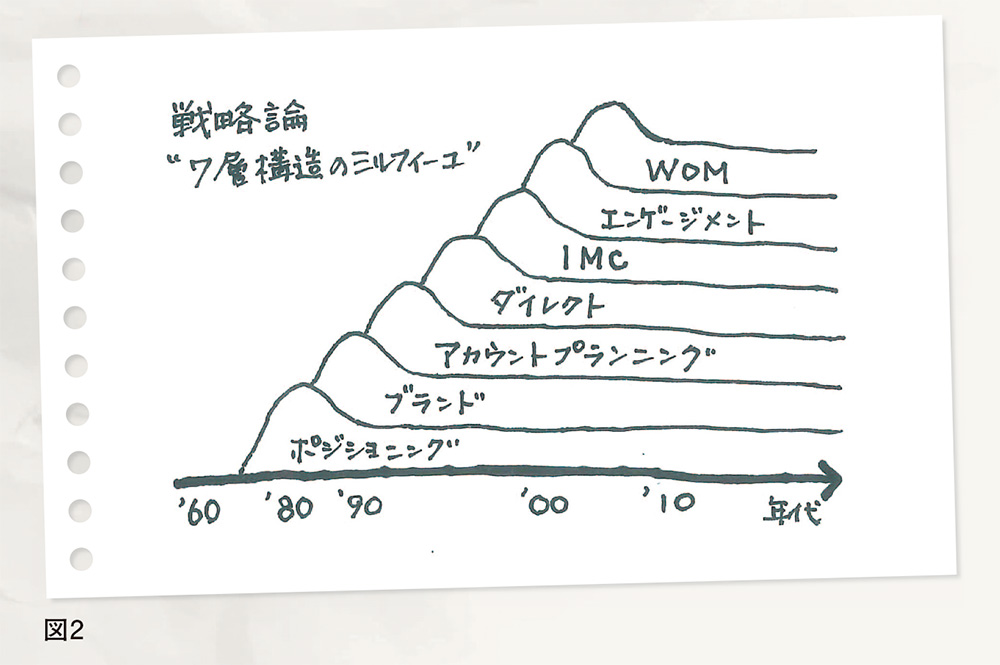 戦略論
“7層構造のミルフィーユ”
WOM
エンゲージメント
IMC
ダイレクト
アカウントプランニング
ブランド
ポジショニング
'60 '80 '90 '00 '10 年代
図2